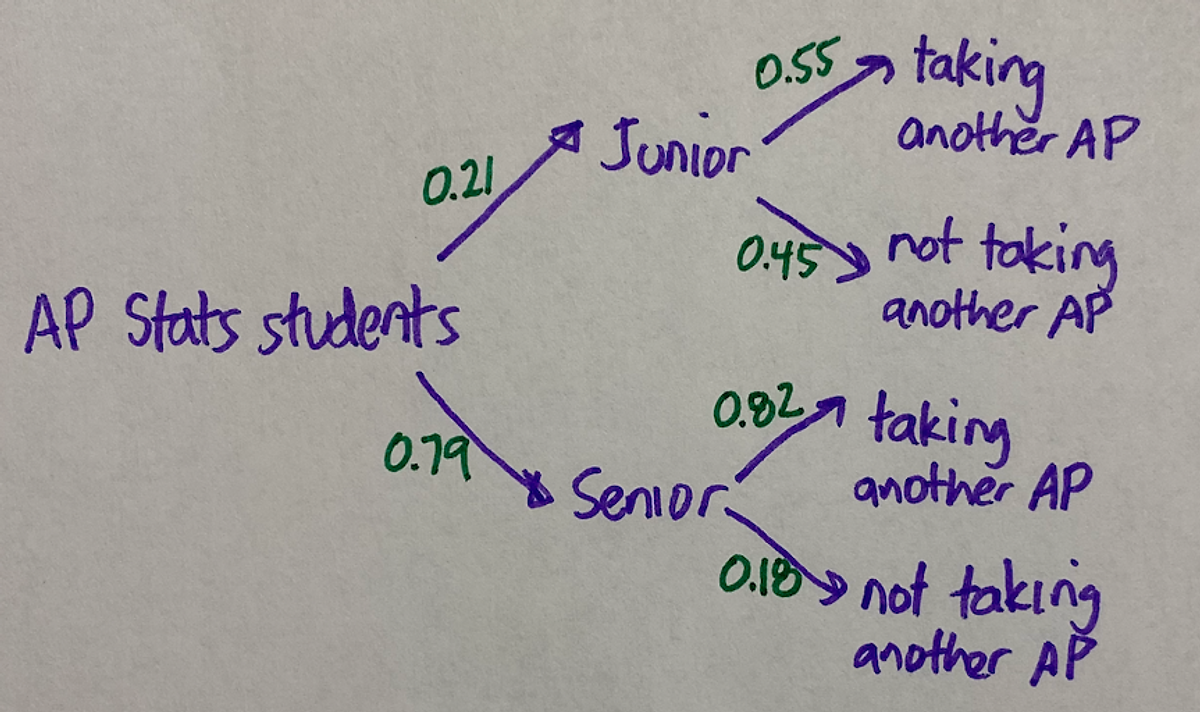 0.55
taking
another AP
Junior
0.21
0.45
not taking
another AP
AP Stats students
0.82
taking
another AP
0.79
Senior
0.18
not taking
another AP